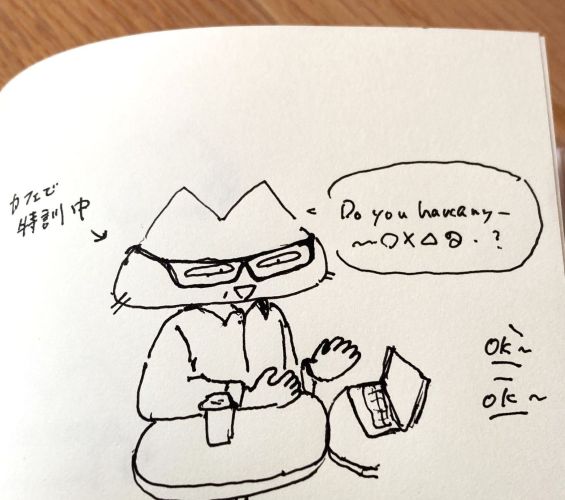 カフェで
特訓中
Do you have any ―
〜○×△ . ?
OK〜
OK〜